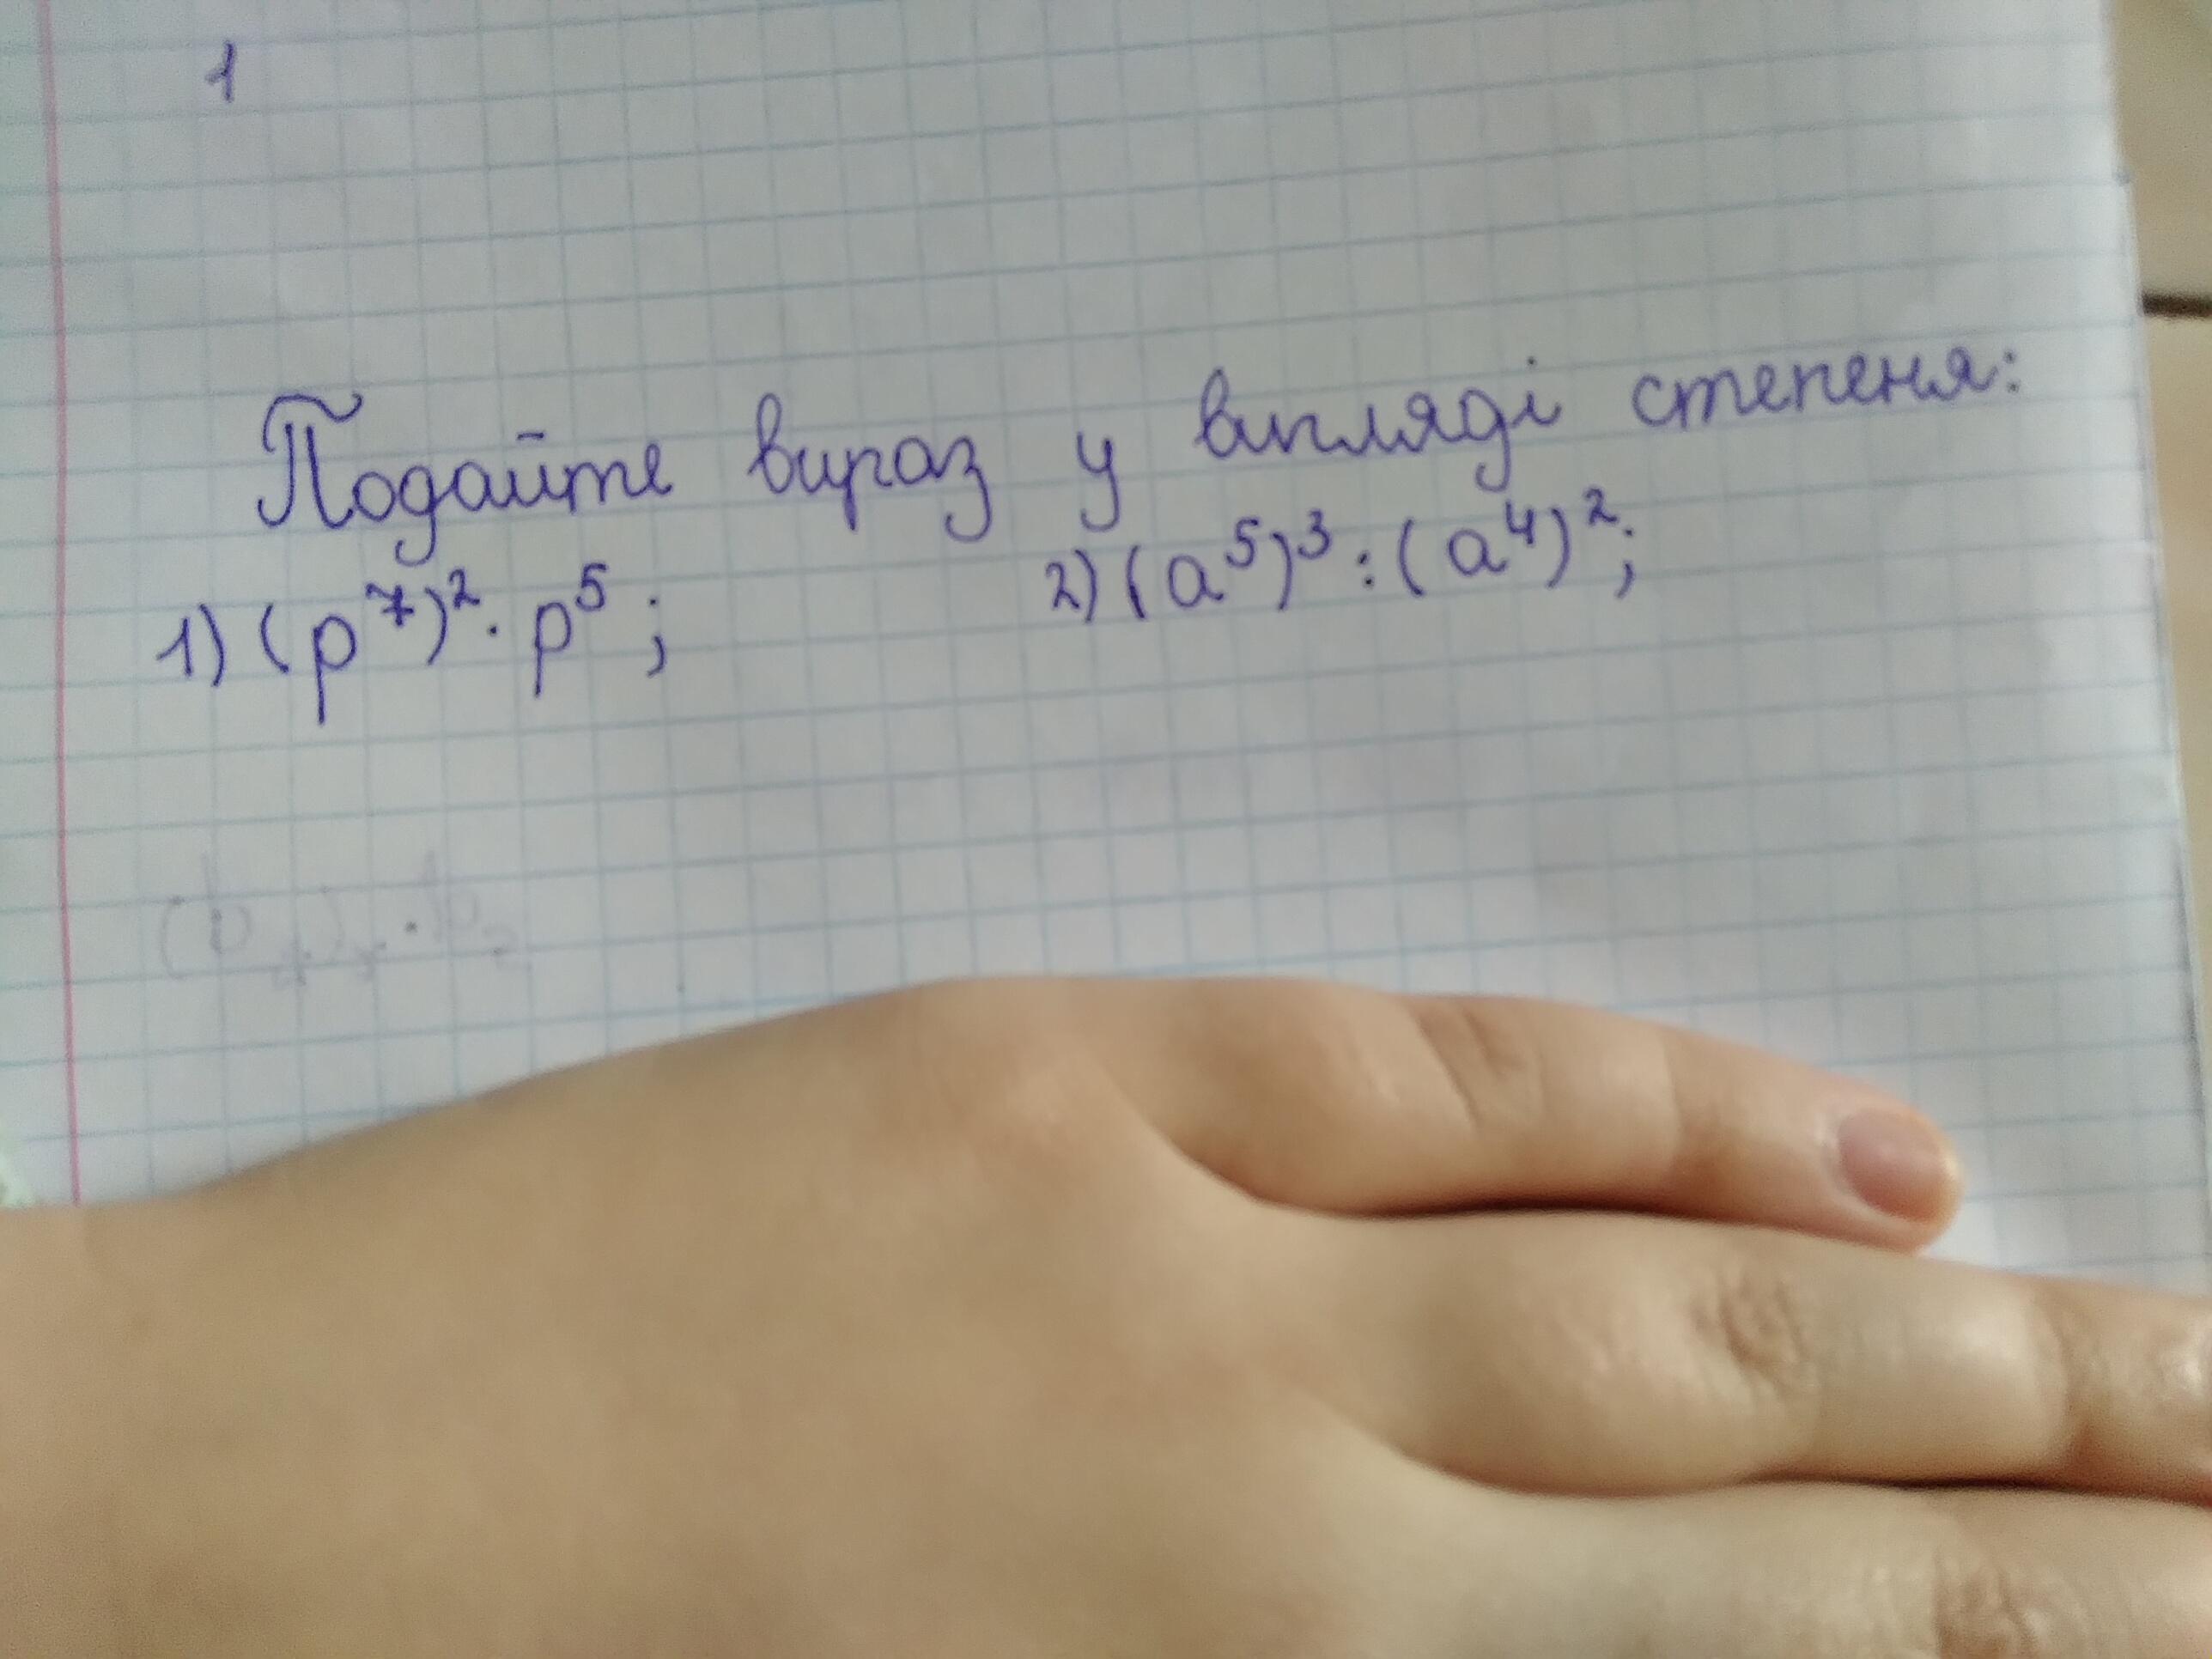 1
Подайте вираз у вигляді степеня:
1) (p⁷)² · p⁵;   2) (a⁵)³ : (a⁴)²;